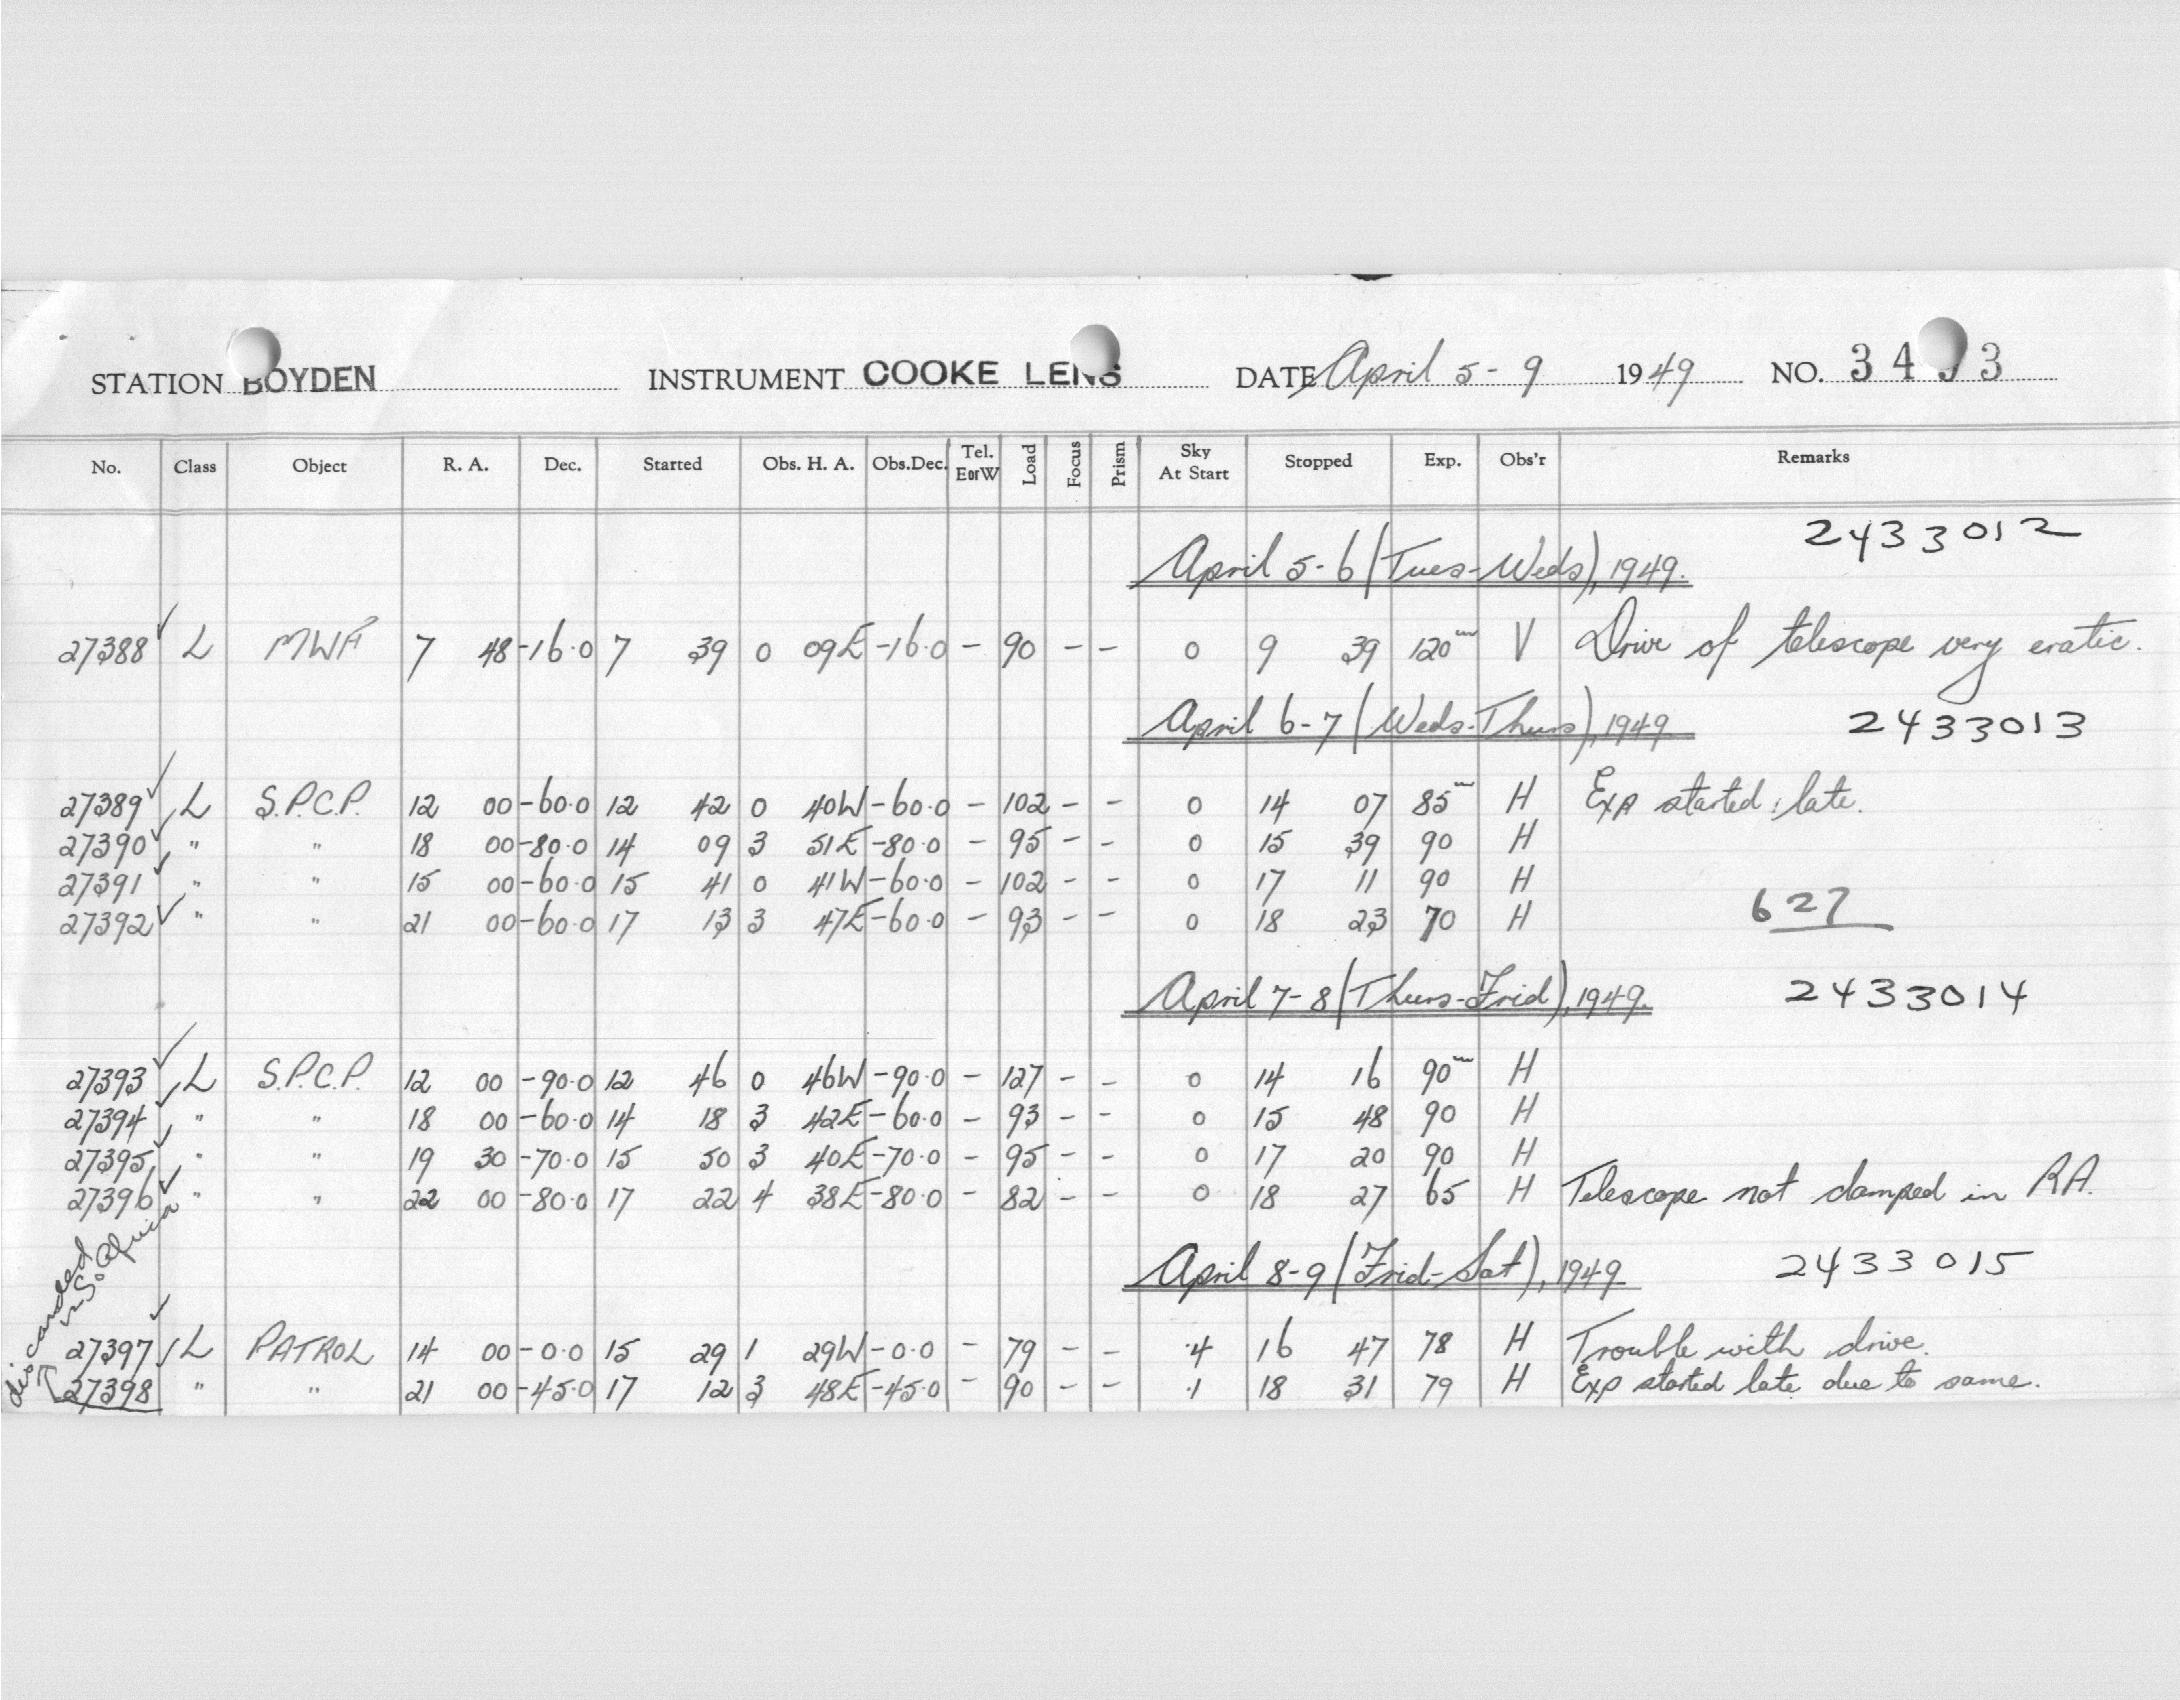 STATION BOYDEN INSTRUMENT COOKE LENS DATE April 5-9 1949 NO. 34 3
No. Class Object R. A. Dec. Started Obs. H. A. Obs.Dec. Tel. EorW Load Focus Prism Sky At Start Stopped Exp. Obs'r Remarks
April 5-6 (Tues-Weds), 1949. 2433012
27388 ✓ L MWF 7 48 -16.0 7 39 0 09E -16.0 - 90 - - 0 9 39 120m V Drive of telescope very eratic.
April 6-7 (Weds-Thurs), 1949 2433013
27389 ✓ L S.P.C.P. 12 00 -60.0 12 42 0 40W -60.0 - 102 - - 0 14 07 85m H Exp started late.
27390 ✓ " " 18 00 -80.0 14 09 3 51E -80.0 - 95 - - 0 15 39 90 H
27391 ✓ " " 15 00 -60.0 15 41 0 41W -60.0 - 102 - - 0 17 11 90 H
27392 ✓ " " 21 00 -60.0 17 13 3 47E -60.0 - 93 - - 0 18 23 70 H 627
April 7-8 (Thurs-Frid), 1949. 2433014
27393 ✓ L S.P.C.P. 12 00 -90.0 12 46 0 46W -90.0 - 127 - - 0 14 16 90m H
27394 ✓ " " 18 00 -60.0 14 18 3 42E -60.0 - 93 - - 0 15 48 90 H
27395 ✓ " " 19 30 -70.0 15 50 3 40E -70.0 - 95 - - 0 17 20 90 H
27396 ✓ " " 22 00 -80.0 17 22 4 38E -80.0 - 82 - - 0 18 27 65 H Telescope not clamped in RA.
April 8-9 (Frid-Sat), 1949 2433015
27397 ✓ L PATROL 14 00 -0.0 15 29 1 29W -0.0 - 79 - - .4 16 47 78 H Trouble with drive.
27398 " " 21 00 -45.0 17 12 3 48E -45.0 - 90 - - .1 18 31 79 H Exp started late due to same.
discarded
in So. Africa